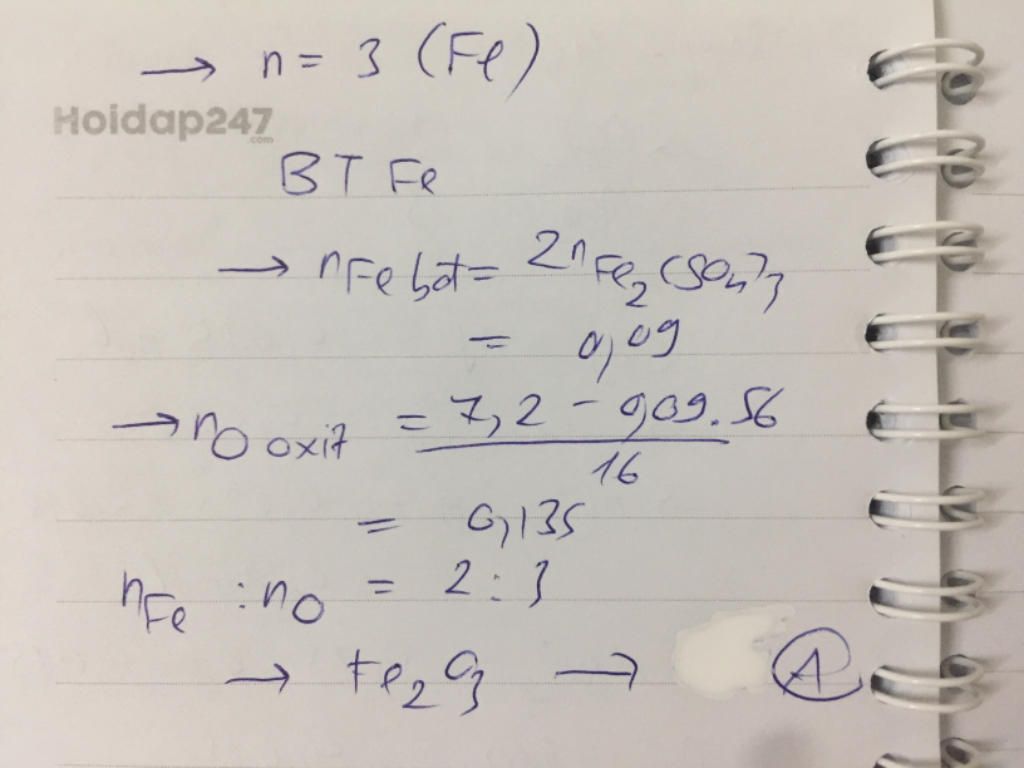 → n = 3 (Fe)
Hoidap247
.com
BT Fe
→ nFe bđ = 2nFe2(SO4)3
= 0,09
→ nO oxit = 7,2 - 0,09.56
16
= 0,135
nFe : nO = 2:3
→ Fe2O3 → A